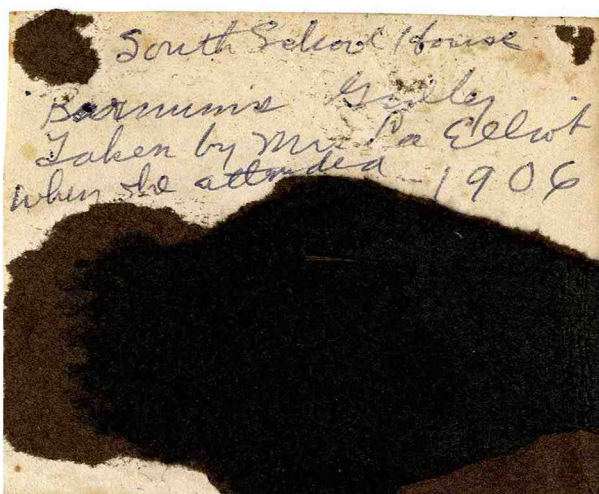 South School House
Barnums
Taken by Mrs Elliot
when she attended - 1906